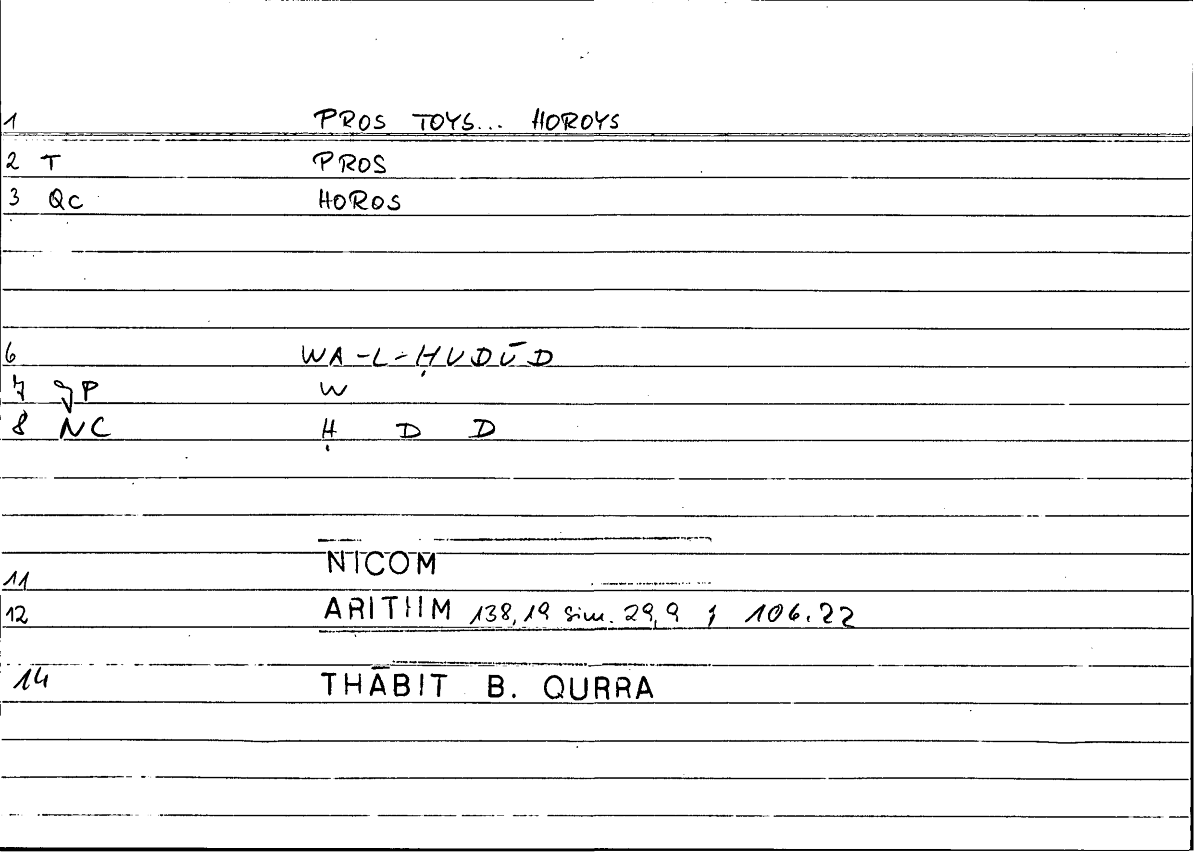 1 PROS TOYS... HOROYS
2 T PROS
3 Qc HOROS
6 WA-L-ḤUDŪD
7 gP W
8 NC Ḥ D D
11 NICOM
12 ARITHM 138,19 sim. 29,9 ; 106.22
14 THĀBIT B. QURRA